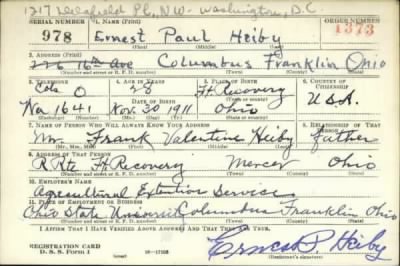 1217 Delafield Pl, N.W. Washington, D.C.
SERIAL NUMBER 1. NAME (Print) ORDER NUMBER
978 Ernest Paul Heiby 1373
(First) (Middle) (Last)
2. ADDRESS (Print)
16th Ave Columbus Franklin Ohio
(Number and street or R. F. D. number) (Town) (County) (State)
3. TELEPHONE 4. AGE IN YEARS 5. PLACE OF BIRTH 6. COUNTRY OF CITIZENSHIP
Cols O 28 Ft Recovery
DATE OF BIRTH U.S.A.
1641 Nov. 30 1911 Ohio
(Exchange) (Number) (Mo.) (Day) (Yr.) (State or country)
7. NAME OF PERSON WHO WILL ALWAYS KNOW YOUR ADDRESS 8. RELATIONSHIP OF THAT PERSON
Mr. Frank Valentine Heiby father
(Mr., Mrs., Miss) (First) (Middle) (Last)
9. ADDRESS OF THAT PERSON
Ft Recovery Mercer Ohio
(Number and street or R. F. D. number) (Town) (County) (State)
10. EMPLOYER'S NAME
Agricultural Extention Service
11. PLACE OF EMPLOYMENT OR BUSINESS
Ohio State Columbus Franklin, Ohio
(Number and street or R. F. D. number) (Town) (County) (State)
I AFFIRM THAT I HAVE VERIFIED ABOVE ANSWERS AND THAT THEY ARE TRUE.
REGISTRATION CARD
D. S. S. Form 1
Ernest P. Heiby
(Registrant's signature)